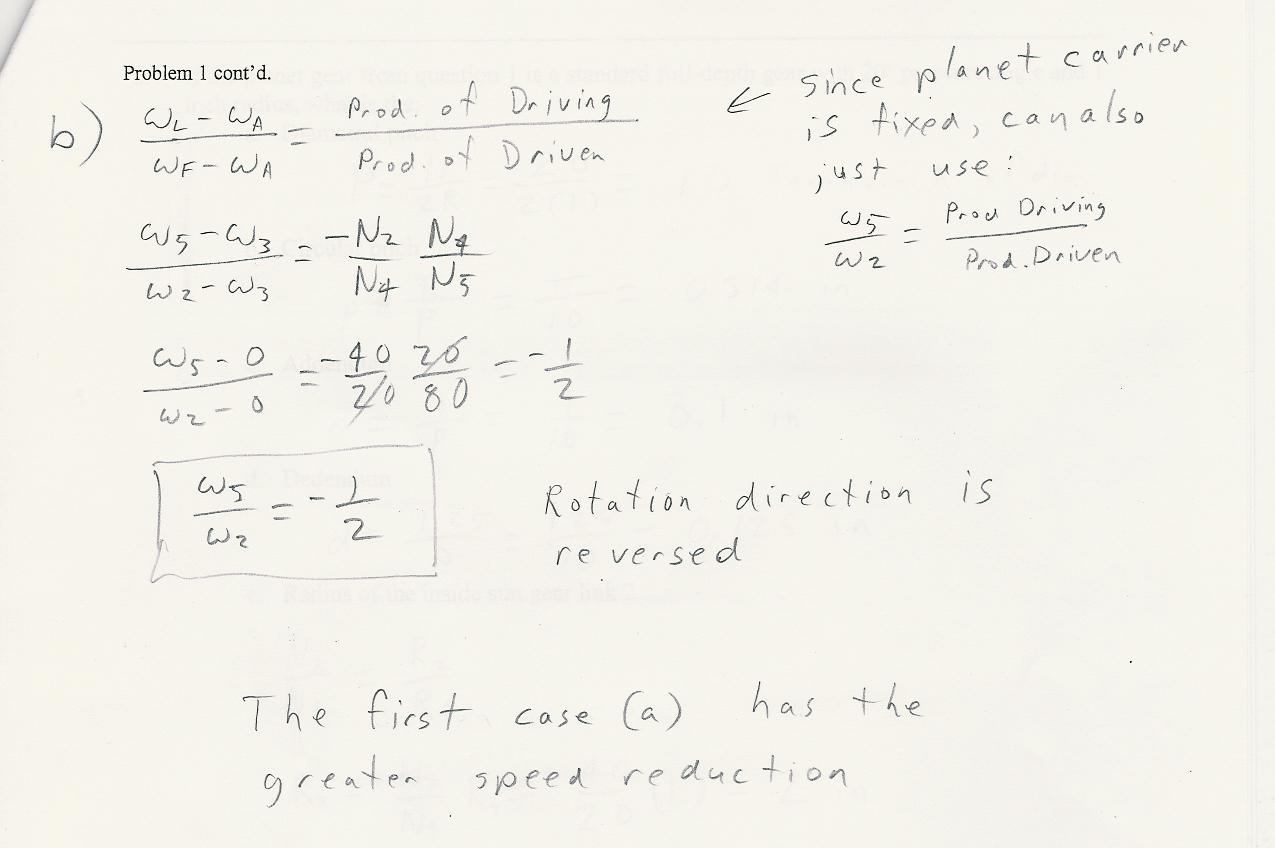 Problem 1 cont'd.
b) (ω_L - ω_A)/(ω_F - ω_A) = Prod. of Driving/Prod. of Driven
← since planet carrier
is fixed, can also
just use:
ω_5/ω_2 = Prod Driving/Prod. Driven
(ω_5 - ω_3)/(ω_2 - ω_3) = -N_2/N_4 N_4/N_5
(ω_5 - 0)/(ω_2 - 0) = -40/20 20/80 = -1/2
ω_5/ω_2 = -1/2
Rotation direction is
reversed
The first case (a) has the
greater speed reduction